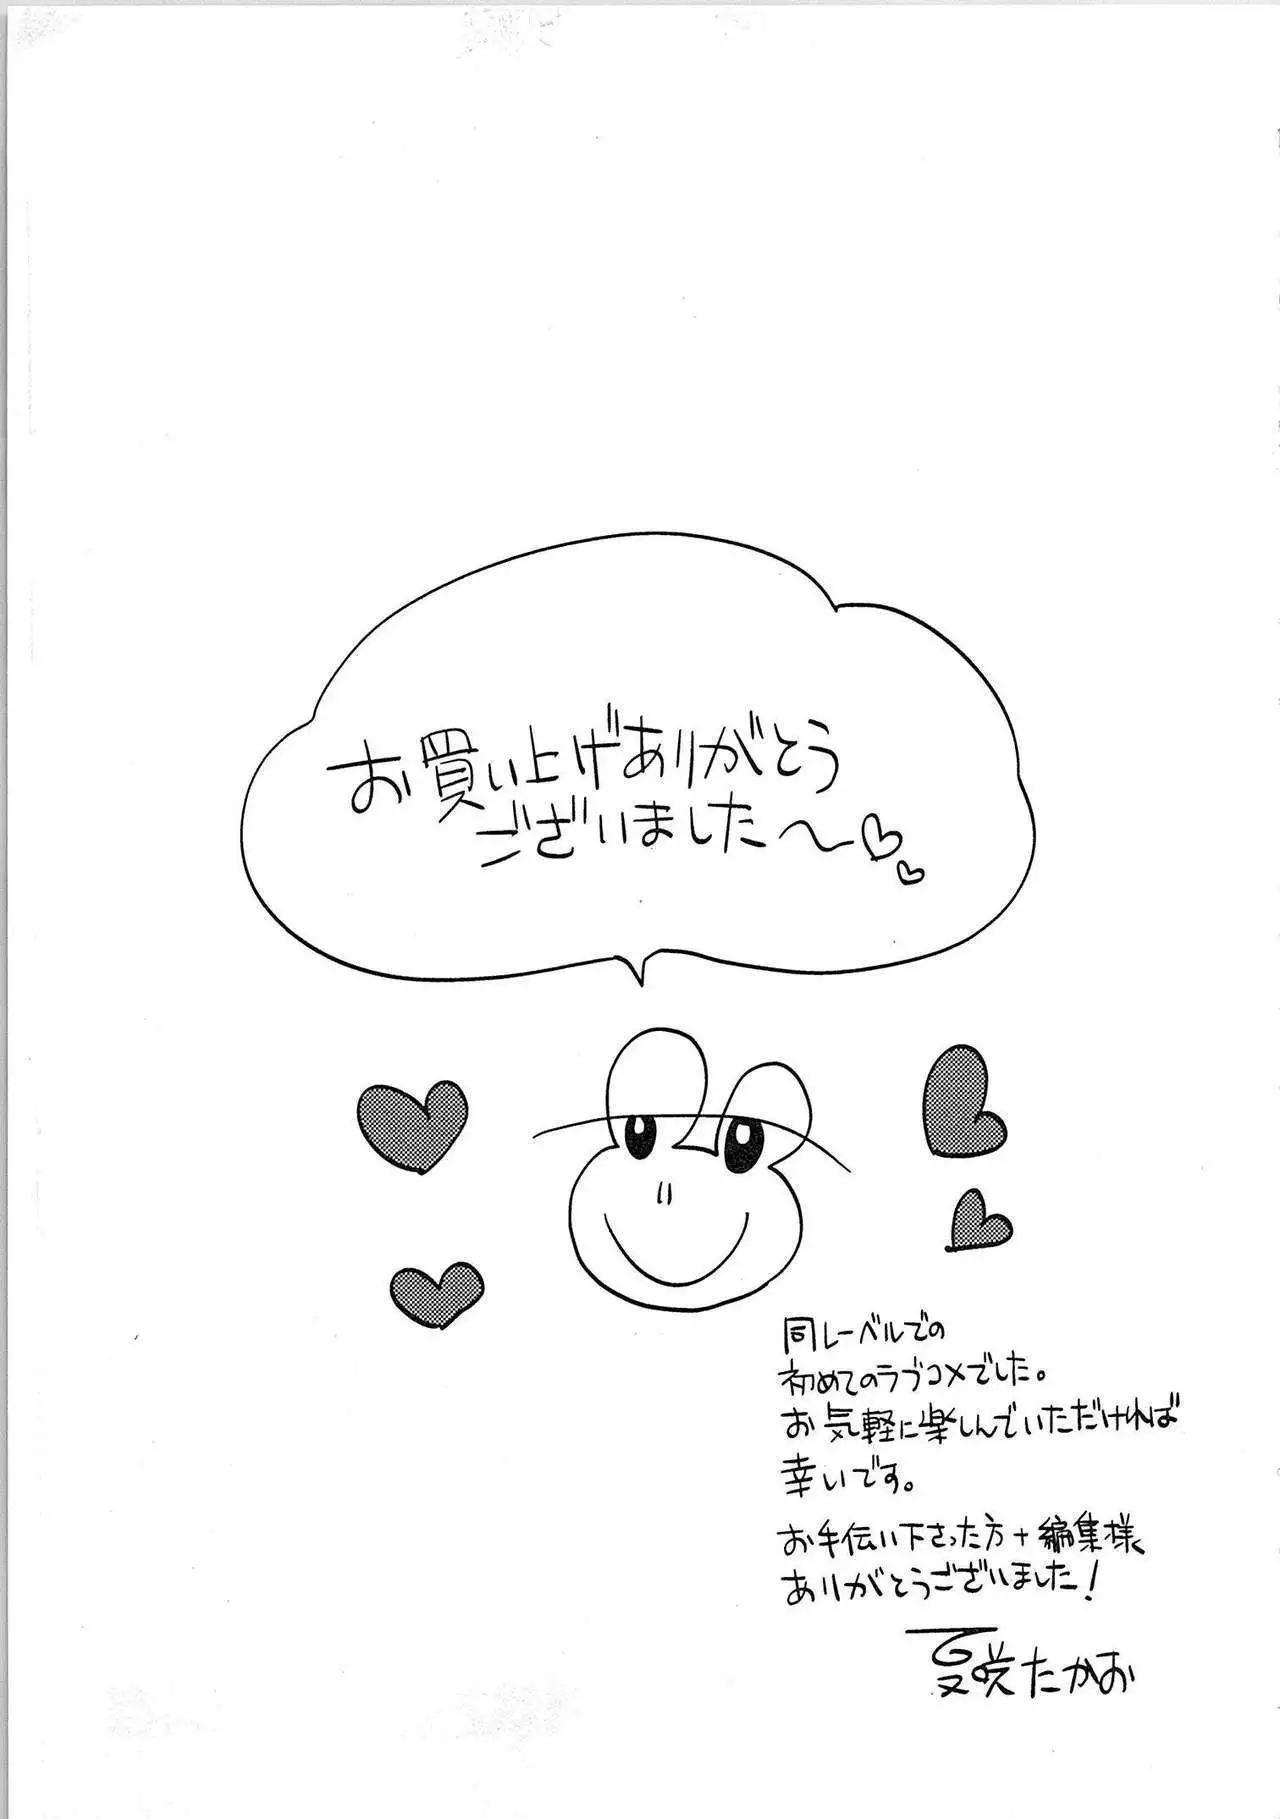 お買い上げありがとう
ございました〜♡♡
同レーベルでの
初めてのラブコメでした。
お気軽に楽しんでいただければ
幸いです。
お手伝い下さった方+編集様
ありがとうございました!
夏咲たかお